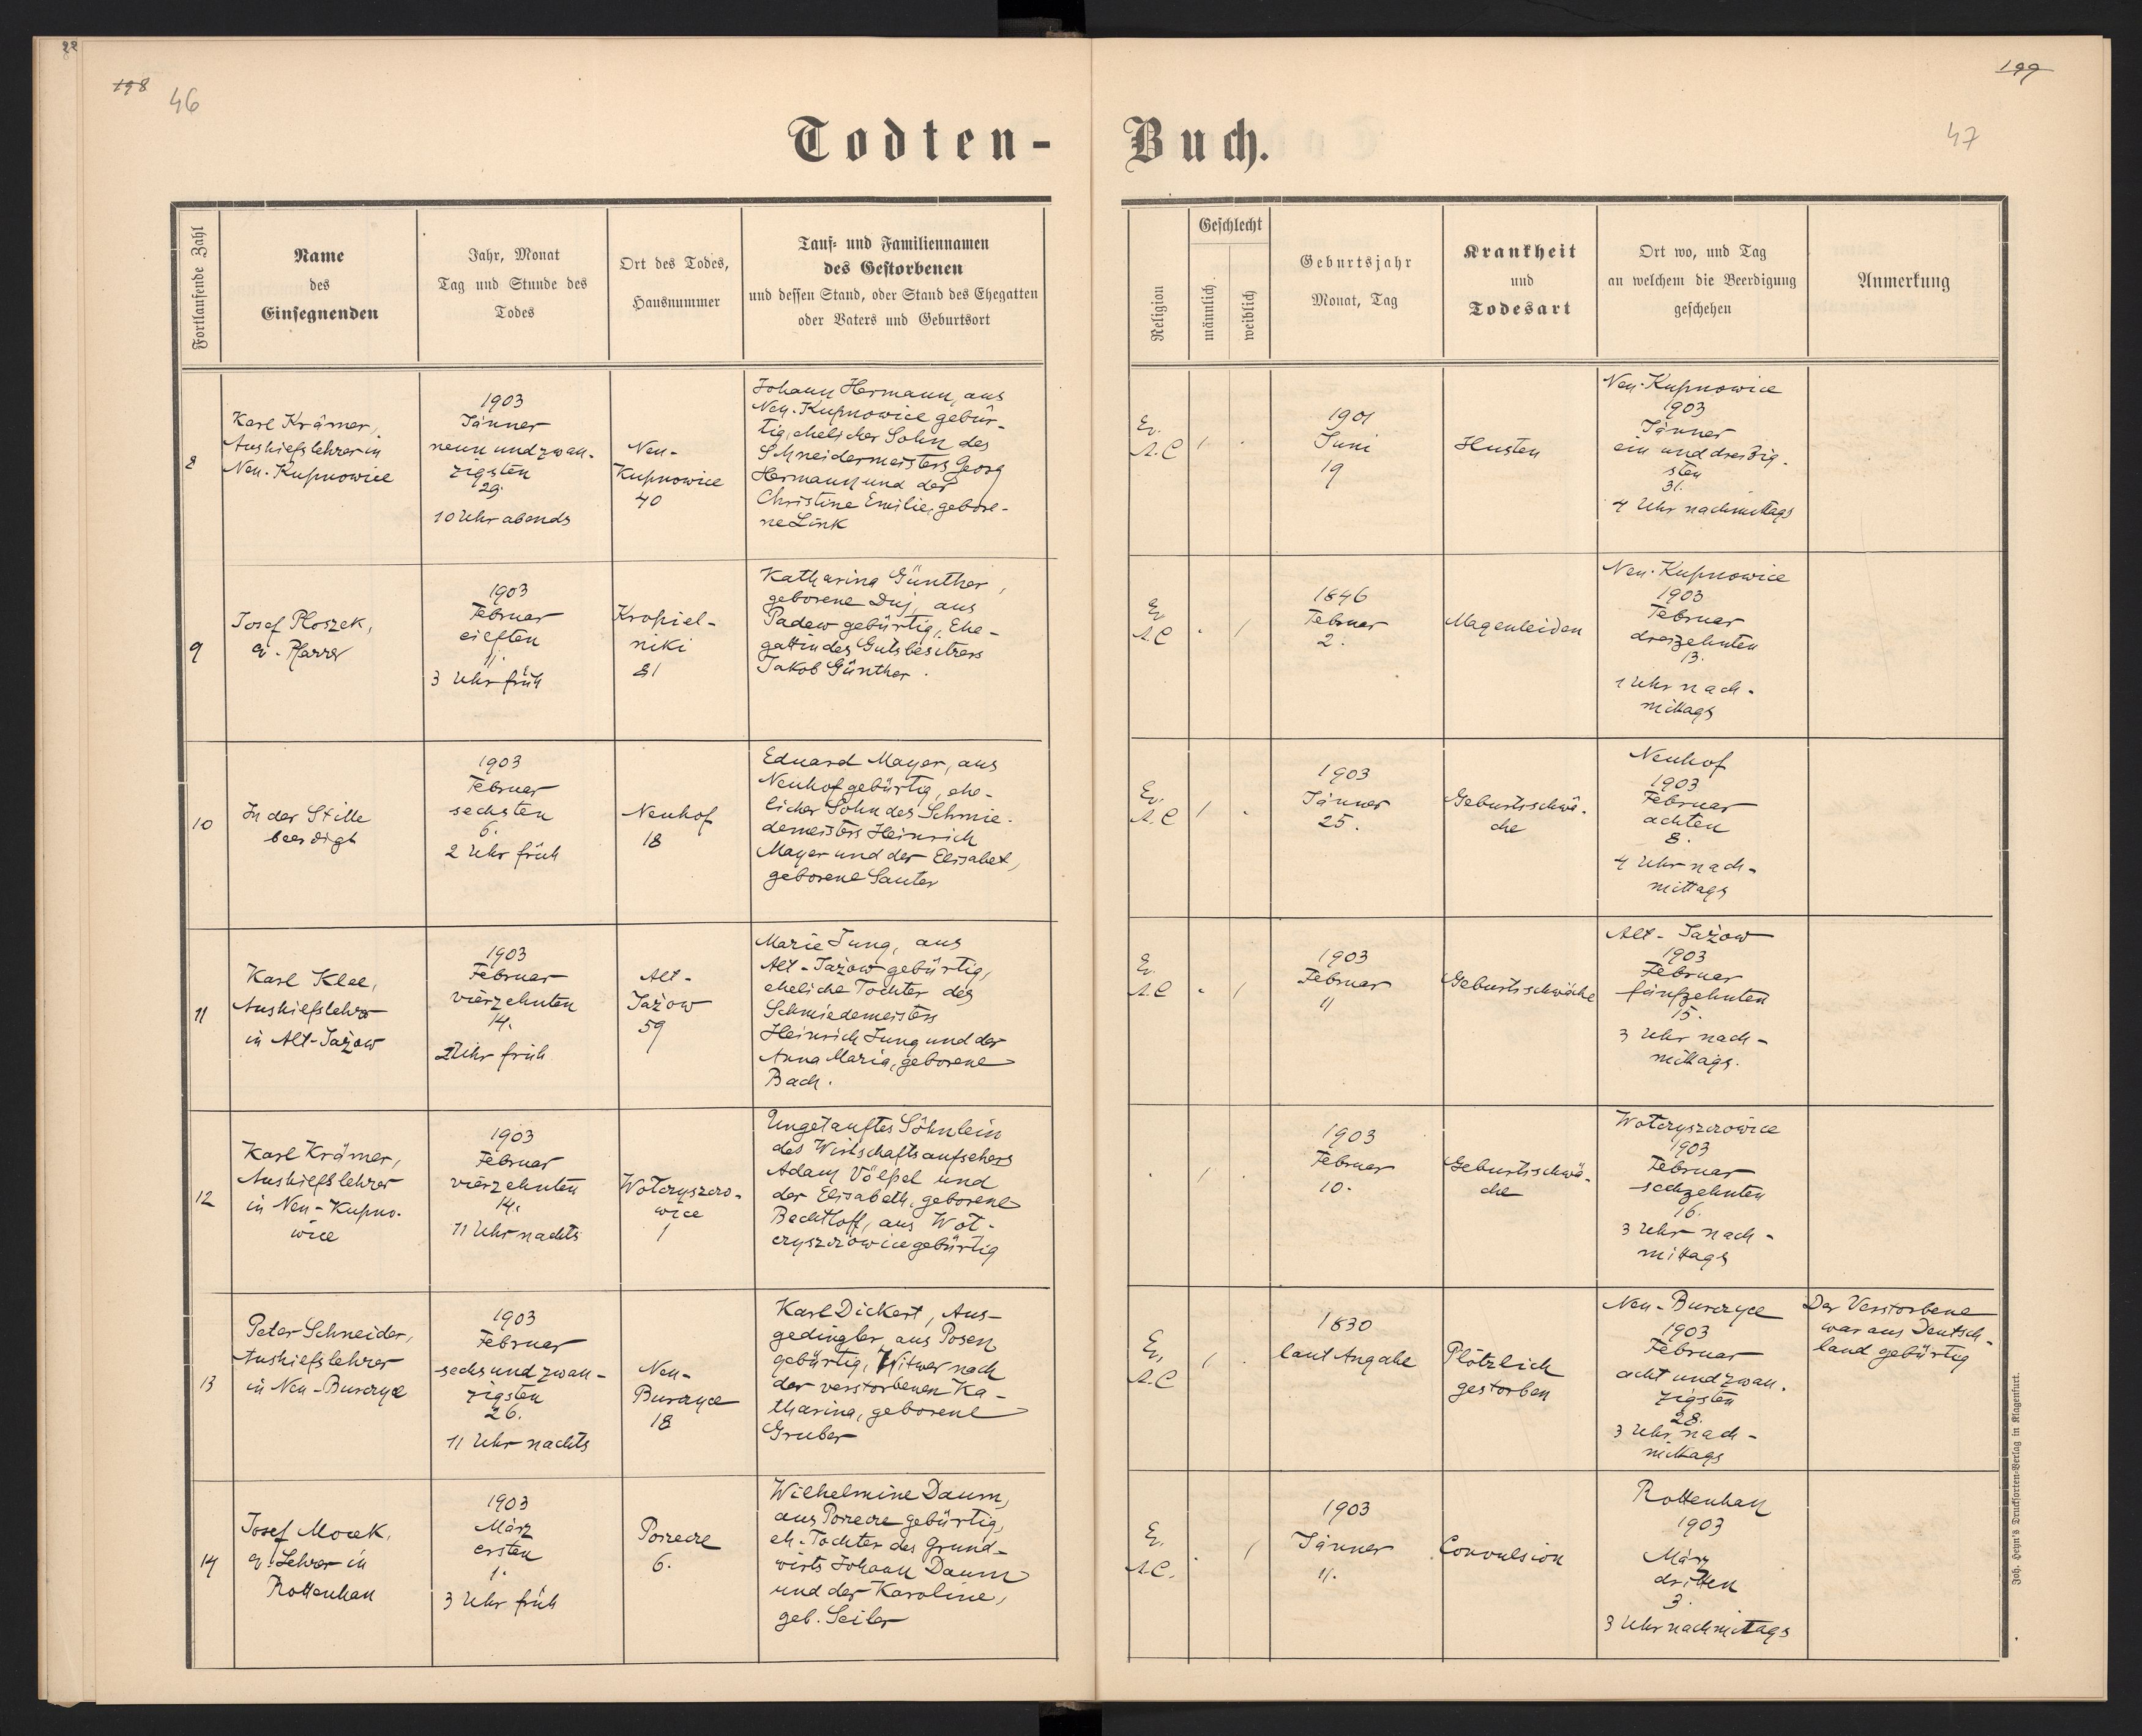 22
198
46
199
47
Todten-
Buch.
Fortlaufende Zahl
Name
des
Einsegnenden
Jahr, Monat
Tag und Stunde des
Todes
Ort des Todes,
Hausnummer
Tauf- und Familiennamen
des Gestorbenen
und dessen Stand, oder Stand des Ehegatten
oder Vaters und Geburtsort
Religion
Geschlecht
männlich
weiblich
Geburtsjahr
Monat, Tag
Krankheit
und
Todesart
Ort wo, und Tag
an welchem die Beerdigung
geschehen
Anmerkung
8
Karl Krämer,
Aushiefslehrer in
Neu-Kupnowice
1903
Jänner
neun und zwan-
zigsten
29.
10 Uhr abends
Neu-
Kupnowice
40
Johann Hermann, aus
Neu-Kupnowice gebür-
tig, ehelicher Sohn des
Schneidermeisters Georg
Hermann und der
Christine Emilie, gebore-
ne Link
Ev.
A.C
1
.
1901
Juni
19
Husten
Neu-Kupnowice
1903
Jänner
ein und dreißig-
sten
31.
4 Uhr nachmittags
9
Josef Ploszek,
ev. Pfarrer
1903
Februar
eilften
11.
3 Uhr früh
Kropiel-
niki
81
Katharina Günther,
geborene Duj, aus
Padew gebürtig, Ehe-
gattin des Gutsbesitzers
Jakob Günther.
Ev.
A.C
.
1
1846
Februar
2.
Magenleiden
Neu-Kupnowice
1903
Februar
dreizehnten
13.
1 Uhr nach-
mittags
10
In der Stille
beerdigt
1903
Februar
sechsten
6.
2 Uhr früh
Neuhof
18
Eduard Mayer, aus
Neuhof gebürtig, ehe-
licher Sohn des Schmie-
demeisters Heinrich
Mayer und der Elisabet,
geborene Sauter
Ev.
A.C
1
.
1903
Jänner
25.
Geburtsschwä-
che
Neuhof
1903
Februar
achten
8.
4 Uhr nach-
mittags
11
Karl Klee,
Aushiefslehrer
in Alt-Jażow
1903
Februar
vierzehnten
14.
2 Uhr früh
Alt-
Jażow
59
Marie Jung, aus
Alt-Jażow gebürtig,
eheliche Tochter des
Schmiedemeisters
Heinrich Jung und der
Anna Maria, geborene
Bach.
Ev.
A.C
.
1
1903
Februar
11
Geburtsschwäche
Alt-Jażow
1903
Februar
fünfzehnten
15.
3 Uhr nach-
mittags.
12
Karl Krämer,
Aushiefslehrer
in Neu-Kupno-
wice
1903
Februar
vierzehnten
14.
11 Uhr nachts
Wotczyszczo-
wice
1
Ungetauftes Söhnlein
des Wirtschaftsaufsehers
Adam Völpel und
der Elisabeth, geborene
Bechtloff, aus Wot-
czyszczowice gebürtig
.
1
.
1903
Februar
10.
Geburtsschwä-
che
Wotczyszczowice
1903
Februar
sechzehnten
16.
3 Uhr nach-
mittags
13
Peter Schneider,
Aushiefslehrer
in Neu-Burczyce
1903
Februar
sechs und zwan-
zigsten
26.
11 Uhr nachts
Neu-
Burczyce
18
Karl Dickert, Aus-
gedingler, aus Posen
gebürtig, Witwer nach
der verstorbenen Ka-
tharina, geborene
Gruber
Ev.
A.C
1
.
1830
laut Angabe
Plötzlich
gestorben
Neu-Burczyce
1903
Februar
acht und zwan-
zigsten
28.
3 Uhr nach-
mittags
Der Verstorbene
war aus Deutsch-
land gebürtig
14
Josef Mocek,
ev. Lehrer in
Rottenhan
1903
März
ersten
1.
3 Uhr früh
Porzecze
6.
Wilhelmine Daum,
aus Porzecze gebürtig,
eh. Tochter des Grund-
wirts Johann Daum
und der Karoline,
geb. Seiler
Ev.
A.C.
.
1
1903
Jänner
11.
Convulsion
Rottenhan
1903
März
dritten
3.
3 Uhr nachmittags
Joh. Heyn's Drucksorten-Verlag in Klagenfurt.